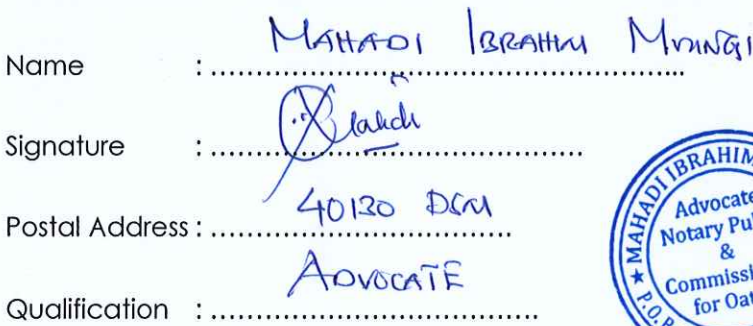 Name : MAHADI IBRAHIM
Signature :
Postal Address : 40130 DSM
Qualification : ADVOCATE
MAHADI IBRAHIM
Advocate
Notary Pu
&
Commissi
for Oat
P.O.B